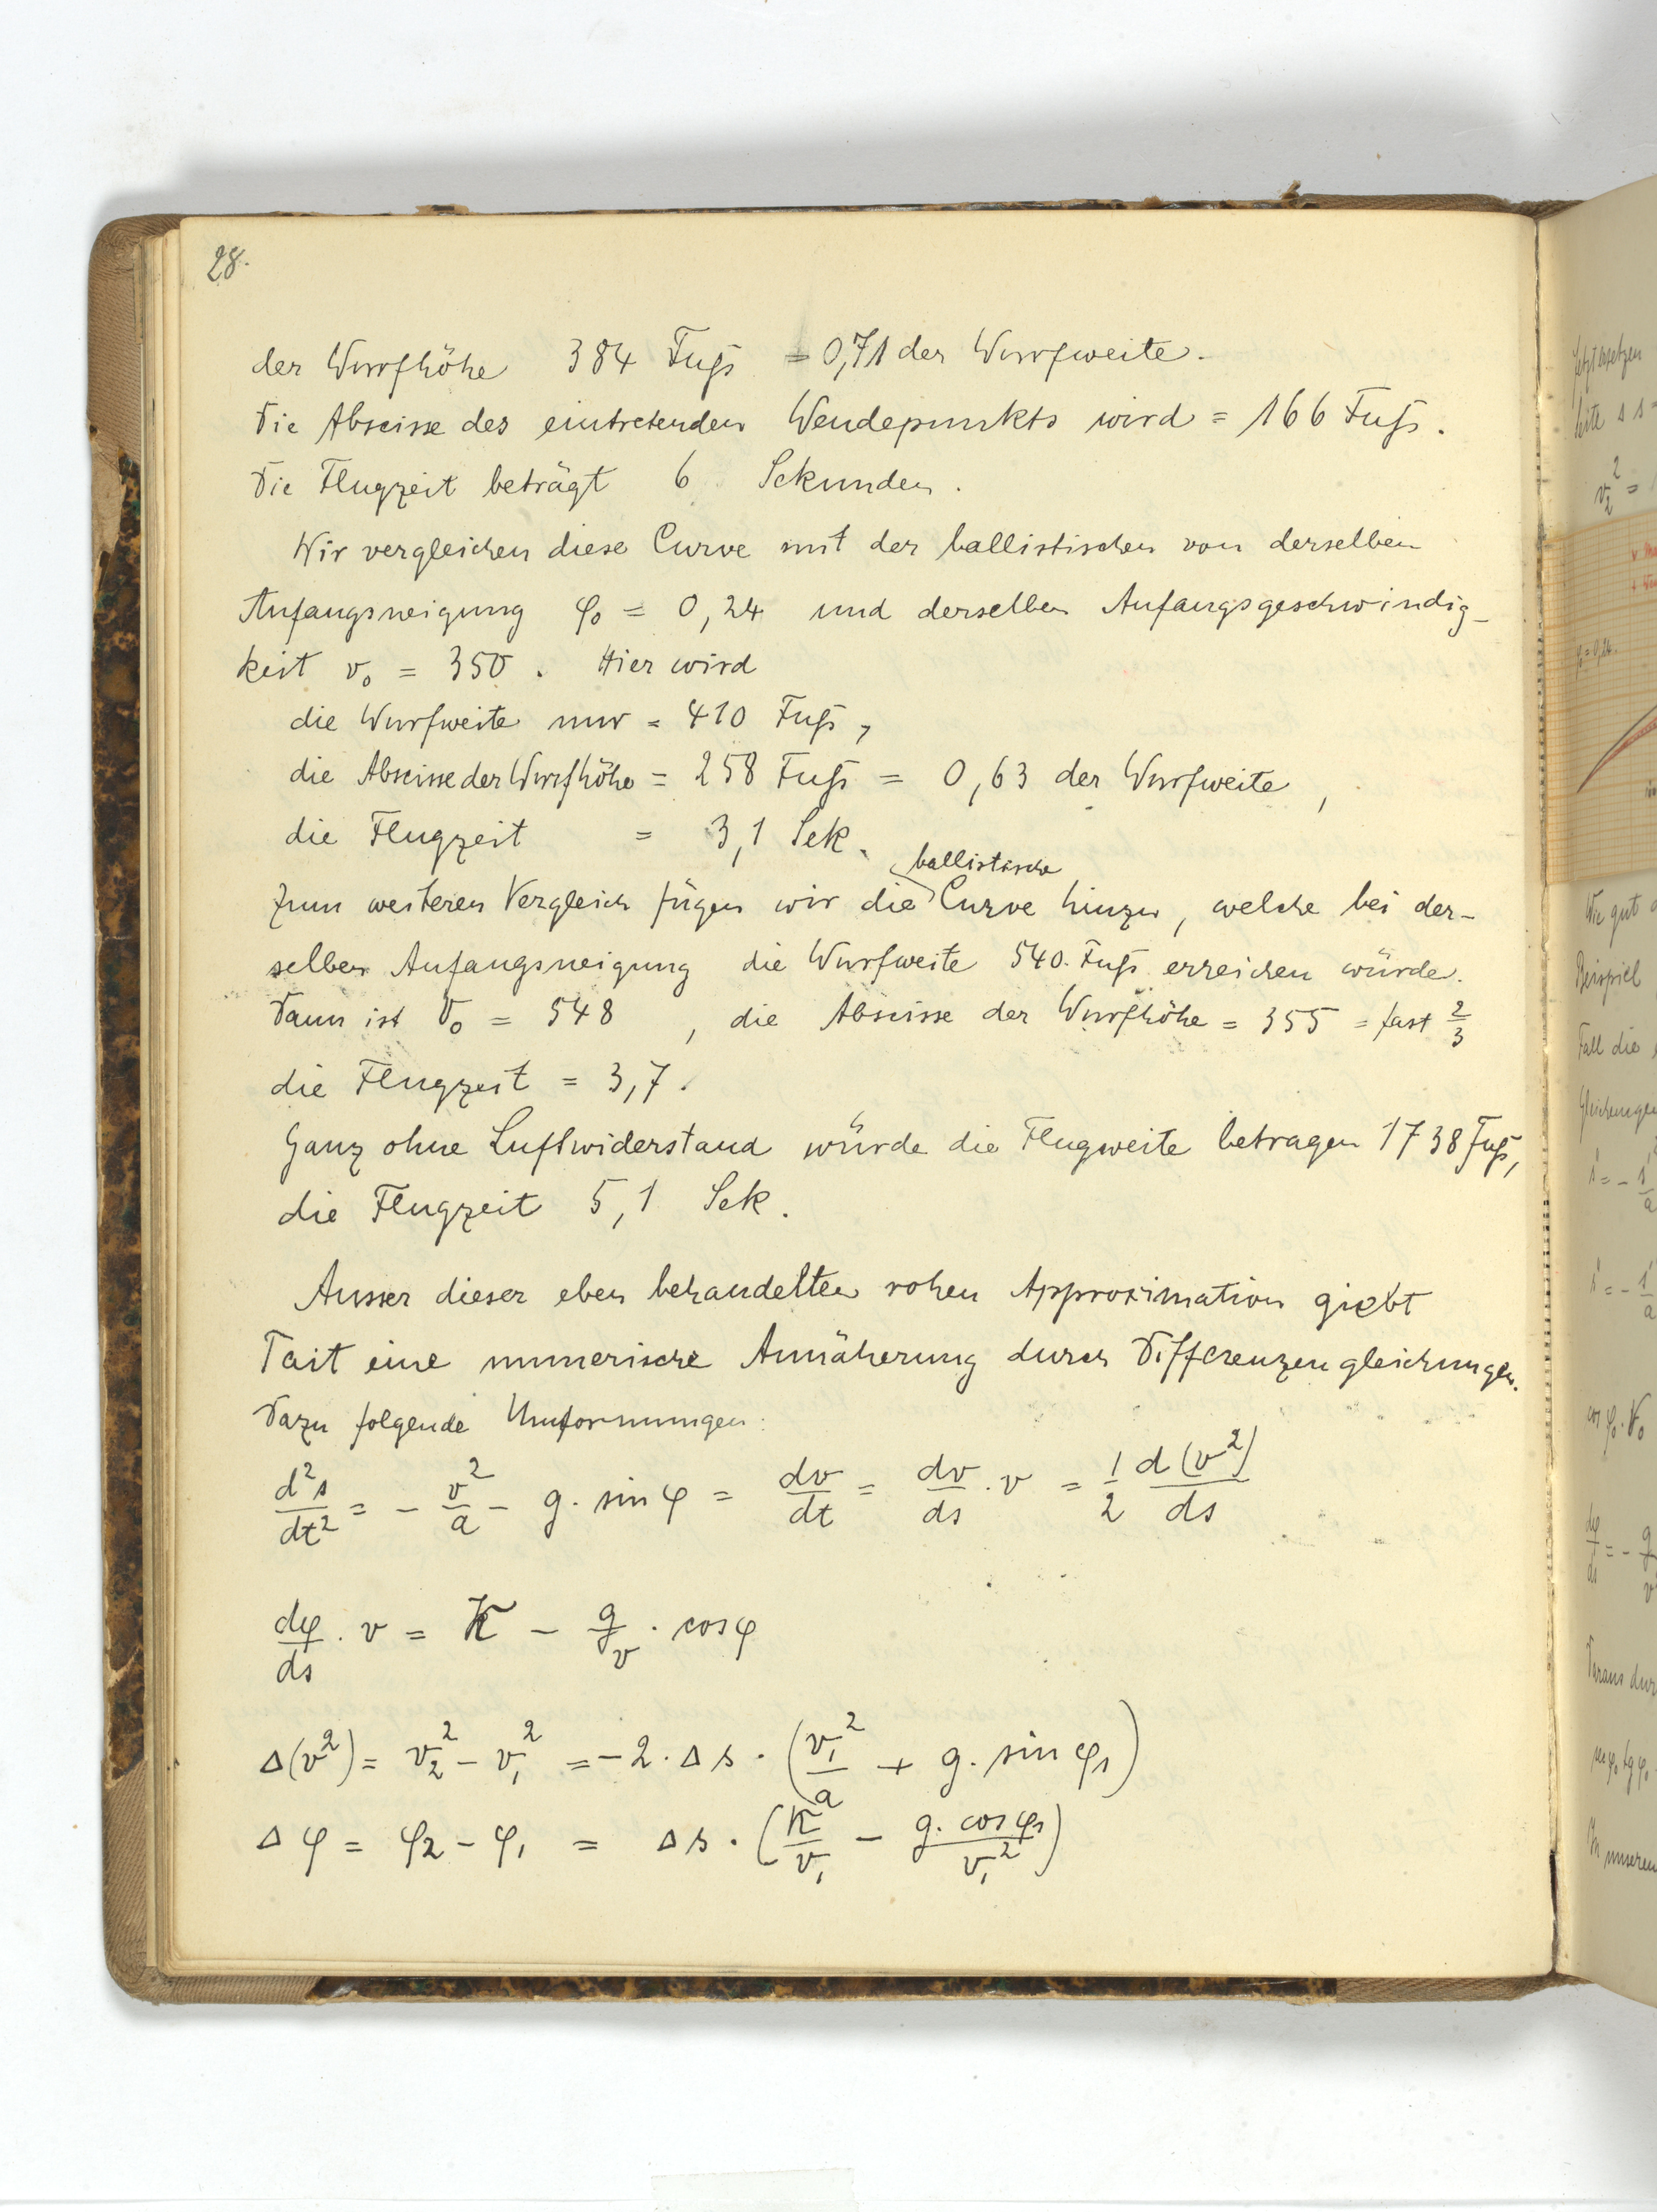 28.
der Wurfhöhe 384 Fuß = 0,71 der Wurfweite.
Die Abscisse des eintretenden Wendepunkts wird = 166 Fuß.
Die Flugzeit beträgt 6 Sekunden.
Wir vergleichen diese Curve mit der ballistischen von derselben
Anfangsneigung φ₀ = 0,24 und derselben Anfangsgeschwindig-
keit v₀ = 350. Hier wird
die Wurfweite nur = 410 Fuß,
die Abscisse der Wurfhöhe = 258 Fuß = 0,63 der Wurfweite,
die Flugzeit = 3,1 Sek.
ballistische
Zum weiteren Vergleich fügen wir die Curve hinzu, welche bei der-
selben Anfangsneigung die Wurfweite 540 Fuß erreichen würde.
Dann ist V₀ = 548, die Abscisse der Wurfhöhe = 355 = fast 2/3
die Flugzeit = 3,7.
Ganz ohne Luftwiderstand würde die Flugweite betragen 1738 Fuß,
die Flugzeit 5,1 Sek.
Ausser dieser eben behandelten rohen Approximation giebt
Tait eine numerische Annäherung durch Differenzengleichungen.
Dazu folgende Umformungen:
d²s/dt² = - v²/a - g · sin φ = dv/dt = dv/ds · v = 1/2 d(v²)/ds
dφ/ds · v = K - g/v · cos φ
Δ(v²) = v₂² - v₁² = -2 · Δs · (v₁²/a + g · sin φ₁)
Δφ = φ₂ - φ₁ = Δs · (K/v₁ - g · cos φ₁/v₁²)